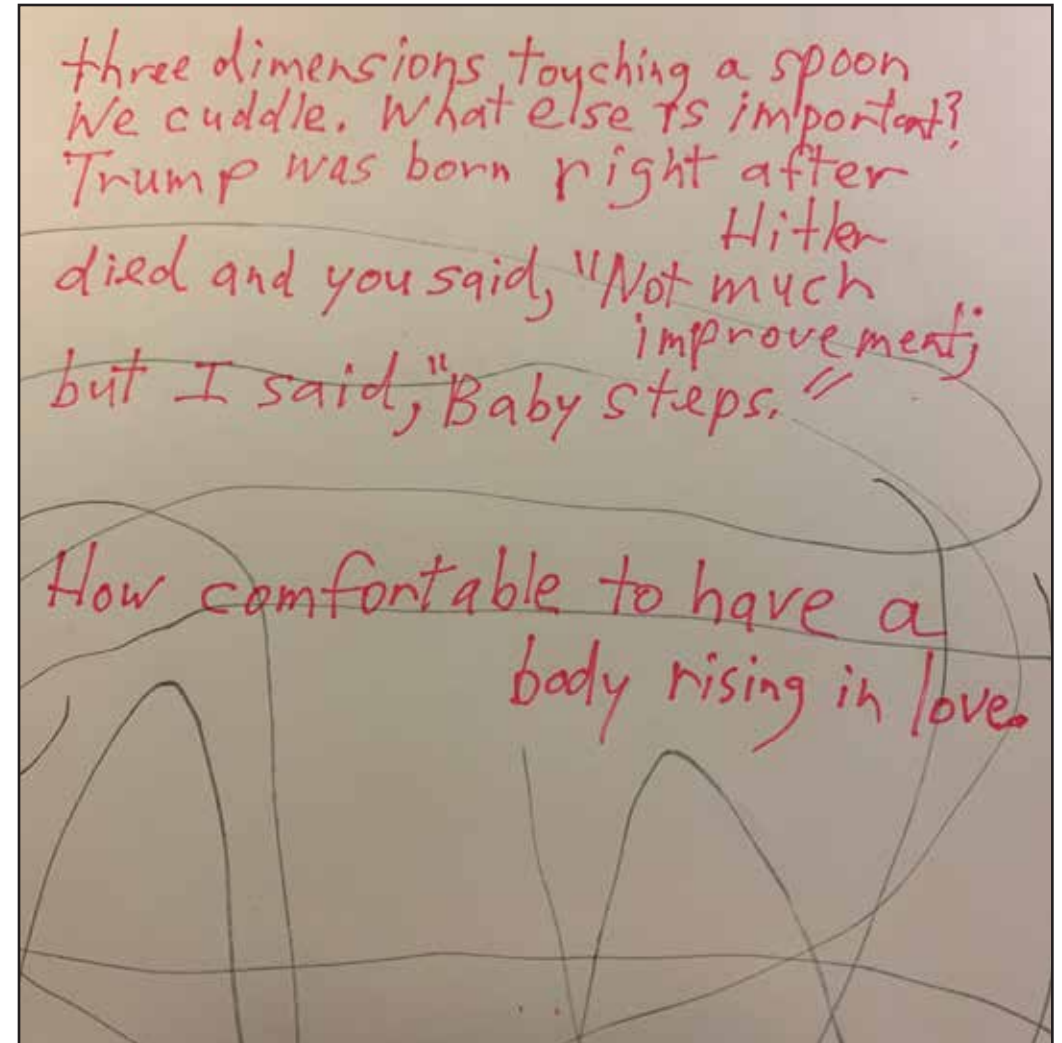 three dimensions, touching a spoon
We cuddle. What else is important?
Trump was born right after
Hitler
died and you said, "Not much
improvement,"
but I said, "Baby steps."
How comfortable to have a
body rising in love.